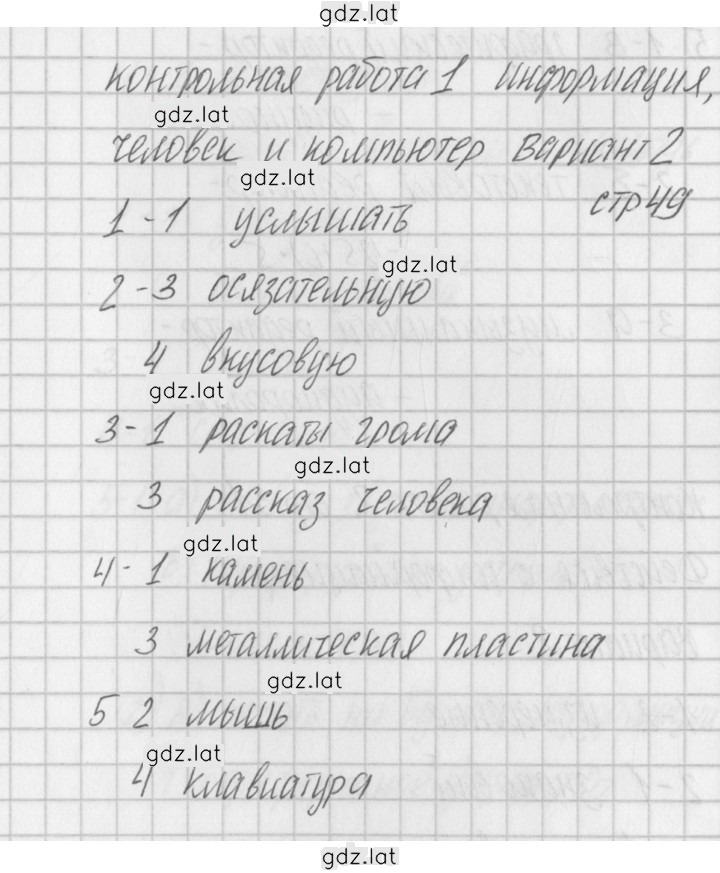 gdz.lat
контрольная работа 1 информация,
gdz.lat
человек и компьютер вариант 2
gdz.lat
стр 49
1-1 услышать
gdz.lat
2-3 осязательную
4 вкусовую
gdz.lat
3-1 раскаты грома
gdz.lat
3 рассказ человека
gdz.lat
4-1 камень
3 металлическая пластина
gdz.lat
5 2 мышь
gdz.lat
4 клавиатура
gdz.lat